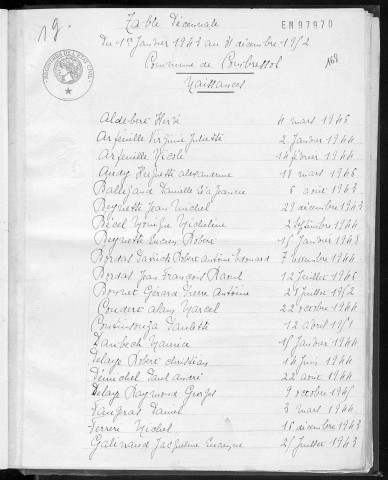 19.
Table Décennale
EN97970
du 1er Janvier 1943 au 31 décembre 1952
168
Commune de Combressol
Naissances
Aldebert Hervé 4 mars 1946
Arfeuille Virginie Juliette 2 Janvier 1944
Arfeuille Nicole 14 février 1944
Audy Huguette alexandrine 18 mars 1946
Danielle Léa Jeanne 6 avril 1943
Beynette Jean Michel 29 décembre 1943
Bécel Monique Micheline 2 septembre 1944
Beynette Lucien Robert 15 Janvier 1948
Bordas Patrick Robert Antoine Edouard 7 novembre 1944
Bordas Jean François Raoul 12 Juillet 1946
Bournet Gérard Pierre Antoine 28 Juillet 1952
Couderc alain Marcel 22 octobre 1944
Paulette 12 avril 1951
Maurice 15 Janvier 1944
Delage Robert christian 14 Juin 1944
Paul andré 22 aout 1944
Delage Raymond Georges 9 octobre 1945
Daniel 3 mars 1944
Ferrère Michel 16 décembre 1943
Galinaud Jacqueline 25 Juillet 1943